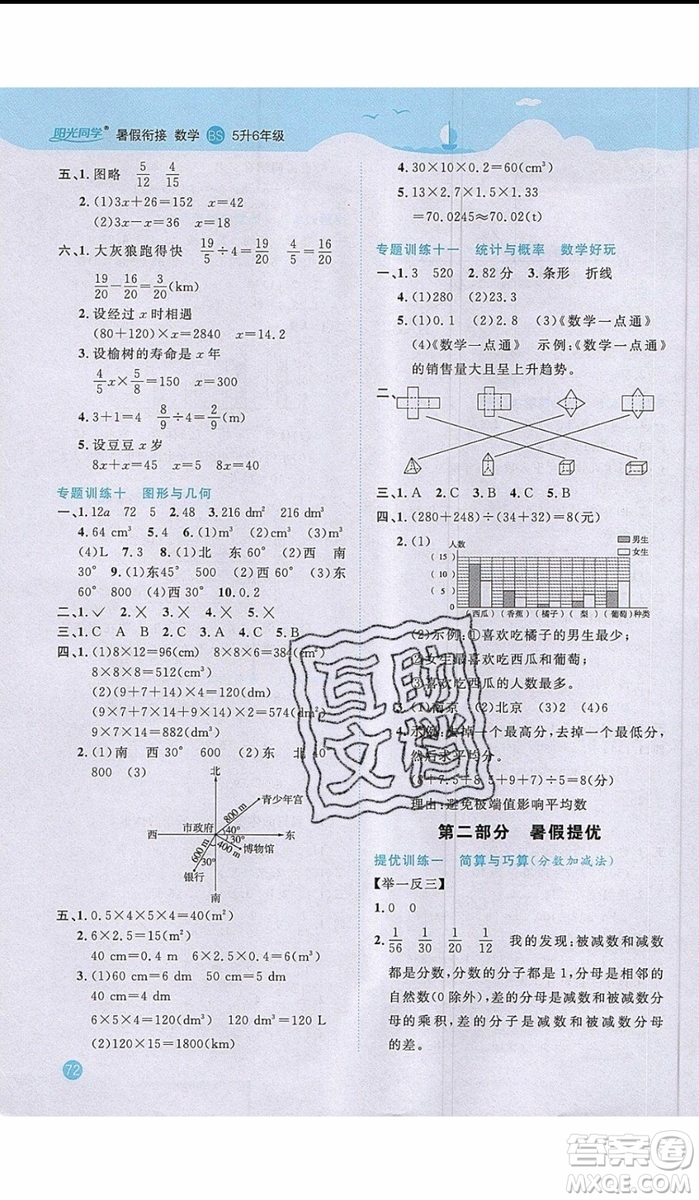 阳光同学® 暑假衔接 数学 BS 5升6年级
五、1. 图略 5/12 4/15
2. (1)3x+26=152 x=42
(2)3x-x=36 x=18
六、1. 大灰狼跑得快 19/5÷4=19/20 4/5=16/20
19/20-16/20=3/20(km)
2. 设经过 x 时相遇
(80+120)×x=2840 x=14.2
3. 设榆树的寿命是 x 年
4/5x×5=1600 x=400
4. 3+1=4 8/9÷4=2/9(米)
5. 设豆豆 x 岁
8x+x=45 x=5
专题训练十 图形与几何
一、1. 12a 72 5 2. 48 3. 216 dm² 216 dm³
4. 64 cm³ 5. 4 6. (1)m³ (2)m² (3)m³
(4)L 7. 3 8. (1)北 东 60° (2)西 南
30° 9. (1)东 北 30° (2)东 南 30°
(4)西 60° 10. 0.2
二、1. ✓ 2. ✗ 3. ✗ 4. ✗ 5. ✗
三、1. C A 2. B 3. B 4. C 5. B
四、1. (1)8×12=96(cm) 8×8×6=384(cm²)
8×8×8=512(cm³)
(2)(9+7+14)×4=120(cm)
(9×7+7×14+14×9)×2=574(cm²)
9×7×14=882(cm³)
2. (1)南 西 30° 600 (2)北 东 30°
800 (3)
北
青少年宫
800 m
市政府
西
40°
30°
东
400 m
博物馆
600 m
30°
银行
南
五、1. 0.5×4×5×4=40(m²)
2. 6×2.5=15(m²)
40 cm=0.4 m 6×2.5×0.4=6(m³)
3. (1)60 cm=6 dm 50 cm=5 dm
40 cm=4 dm
6×5×4=120(dm³) 120 dm³=120 L
(2)120×15=1800(km)
72
4. 30×10×0.2=60(dm³)
5. 13×2.7×1.5×1.33
=70.0245≈70.02(t)
专题训练十一 统计与概率 数学好玩
一、1. 3 520 2. 82 分 3. 条形 折线
4. (1)280 (2)23.3
5. (1)0.1 (2)0.5 (3)《数学一点通》
(4)《数学一点通》 示例:《数学一点通》
的销售量大且呈上升趋势。
二、
三、1. A 2. C 3. B 4. C 5. B
四、1. (280+248)÷(34+32)=8(元)
2. (1)
人数
男生
女生
(15)
(10)
(5)
0
(西瓜)(香蕉)(橘子)(梨)(葡萄)种类
(2)示例:①喜欢吃橘子的男生最少。
②女生最喜欢吃西瓜和葡萄。
③喜欢吃西瓜的人数最多。
3. (1)南京 (2)北京 (3)2 6
4. 示例:去掉一个最高分,去掉一个最低分,
然后求平均分。
理由:避免极端值影响平均数
第二部分 暑假提优
提优训练一 简算与巧算(分数加减法)
【举一反三】
1. 0 0
2. 1/56 1/30 1/12 1/6 我的发现:被减数和减数
都是分数,分数的分子都是1,分母是相邻的
自然数(0除外),差的分母是被减数和减数分
母的乘积,差的分子是减数和被减数分母
的差。
互助文档
答案圈
MXQE.COM